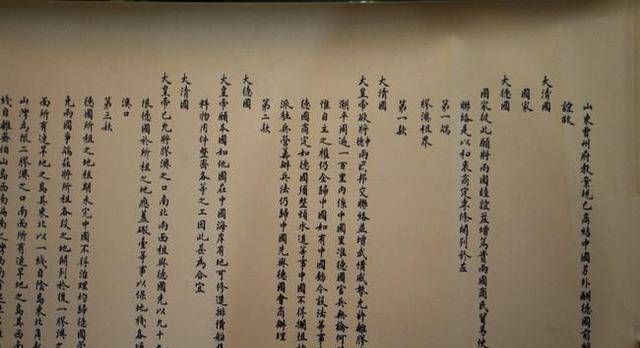 山東曹州府教案現已商結中國另外酬德國前
誼故
大清國
國家
大德國
國家彼此願將兩國睦誼益增篤實兩國商民貿易
聯絡是以和衷商定專條開列於左
第一端
膠澳租界
第一款
大清國
大皇帝欲將中德兩國邦交聯絡並增武備威勢允許離膠
潮平周遍一百里內係中國里准德國官兵無論何時
惟自主之權仍全歸中國如有中國飭令設法等事
德國商定如德國須整頓水道等事中國不得攔阻
派駐兵營籌辦兵法仍歸中國先與德國會商辦理
第二款
大德國
大皇帝願本國如他國在中國海岸有地可修造排備船隻
料物用件整齊各等之工因此甚為合宜
大清國
大皇帝已允將膠澳之口南北兩面租與德國先以九十
限德國於所租之地應蓋礮臺等事以保地棧各項
澳口
第三款
德國所租之地租期未完中國不得治理均歸德國
免兩國爭端茲將所租各段之地開列於後一膠澳之
面所有連旱地之島其東北以一線自陰島東北角
山灣為限二膠澳之口南面所有連旱地之島其西南
綫自離齊伯山島西南偏南之灣西南首